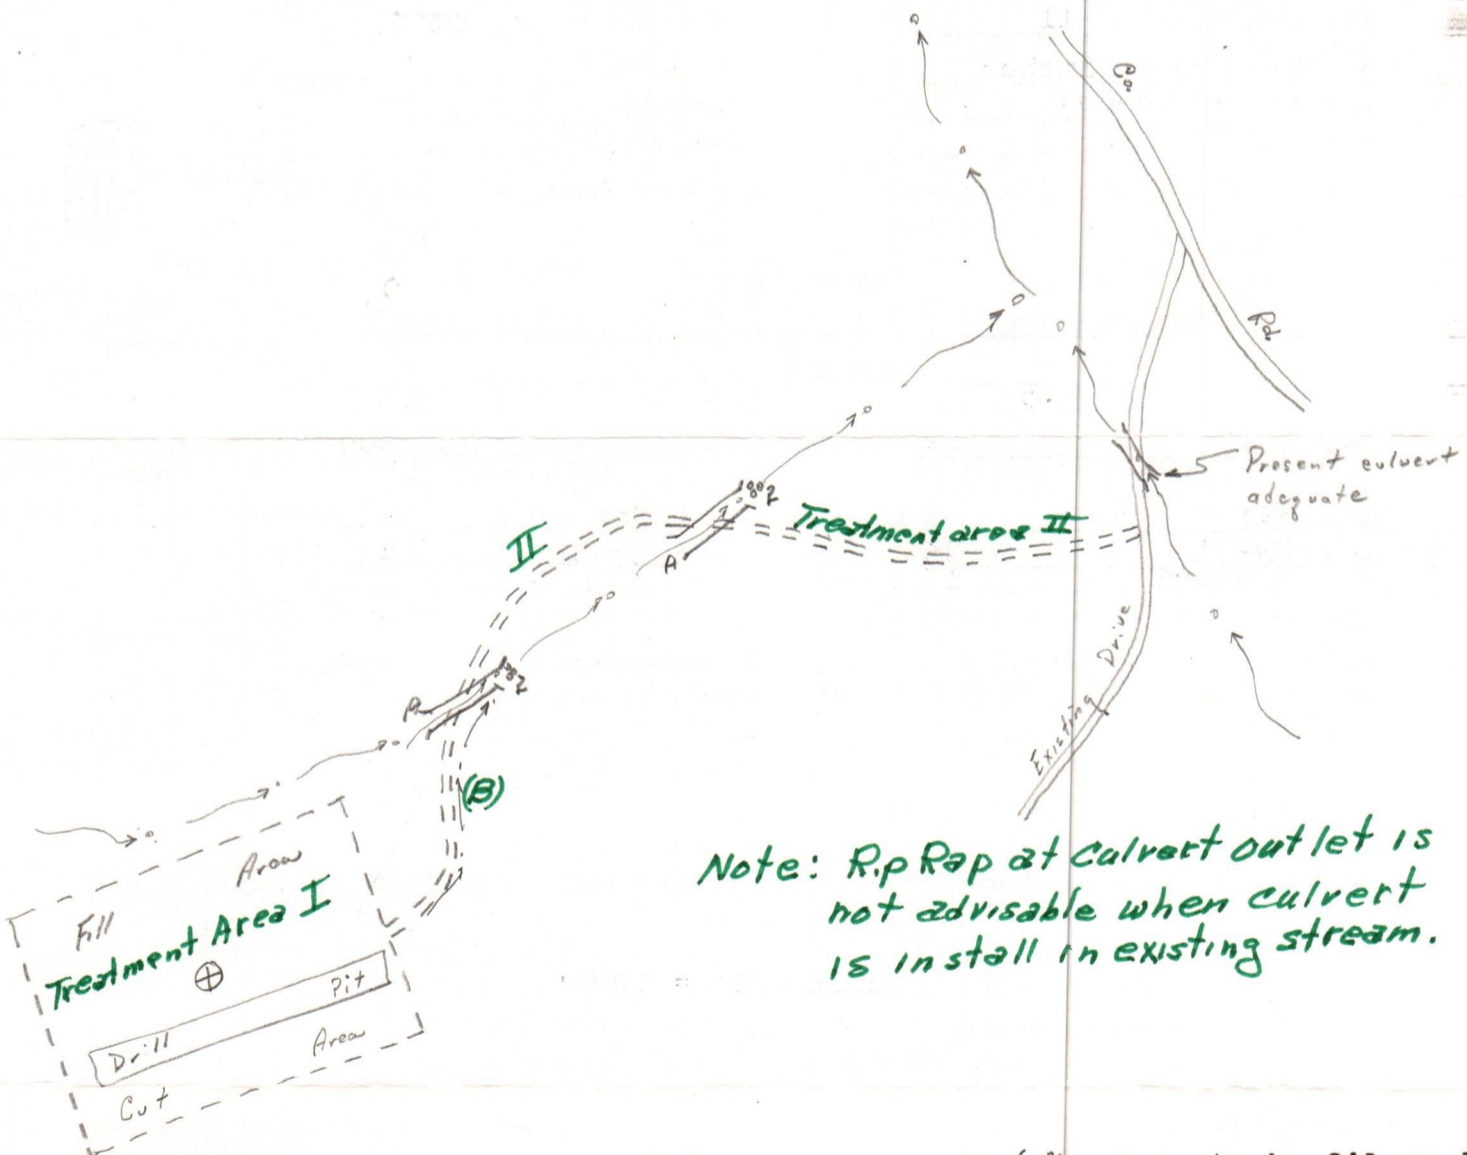 Co.
Rd.
Present culvert
adequate
Treatment area II
II
A
Existing Drive
A
(B)
Area
Fill
Treatment Area I
Pit
Drill
Area
Cut
Note: Rip Rap at Culvert outlet is
not advisable when culvert
is install in existing stream.